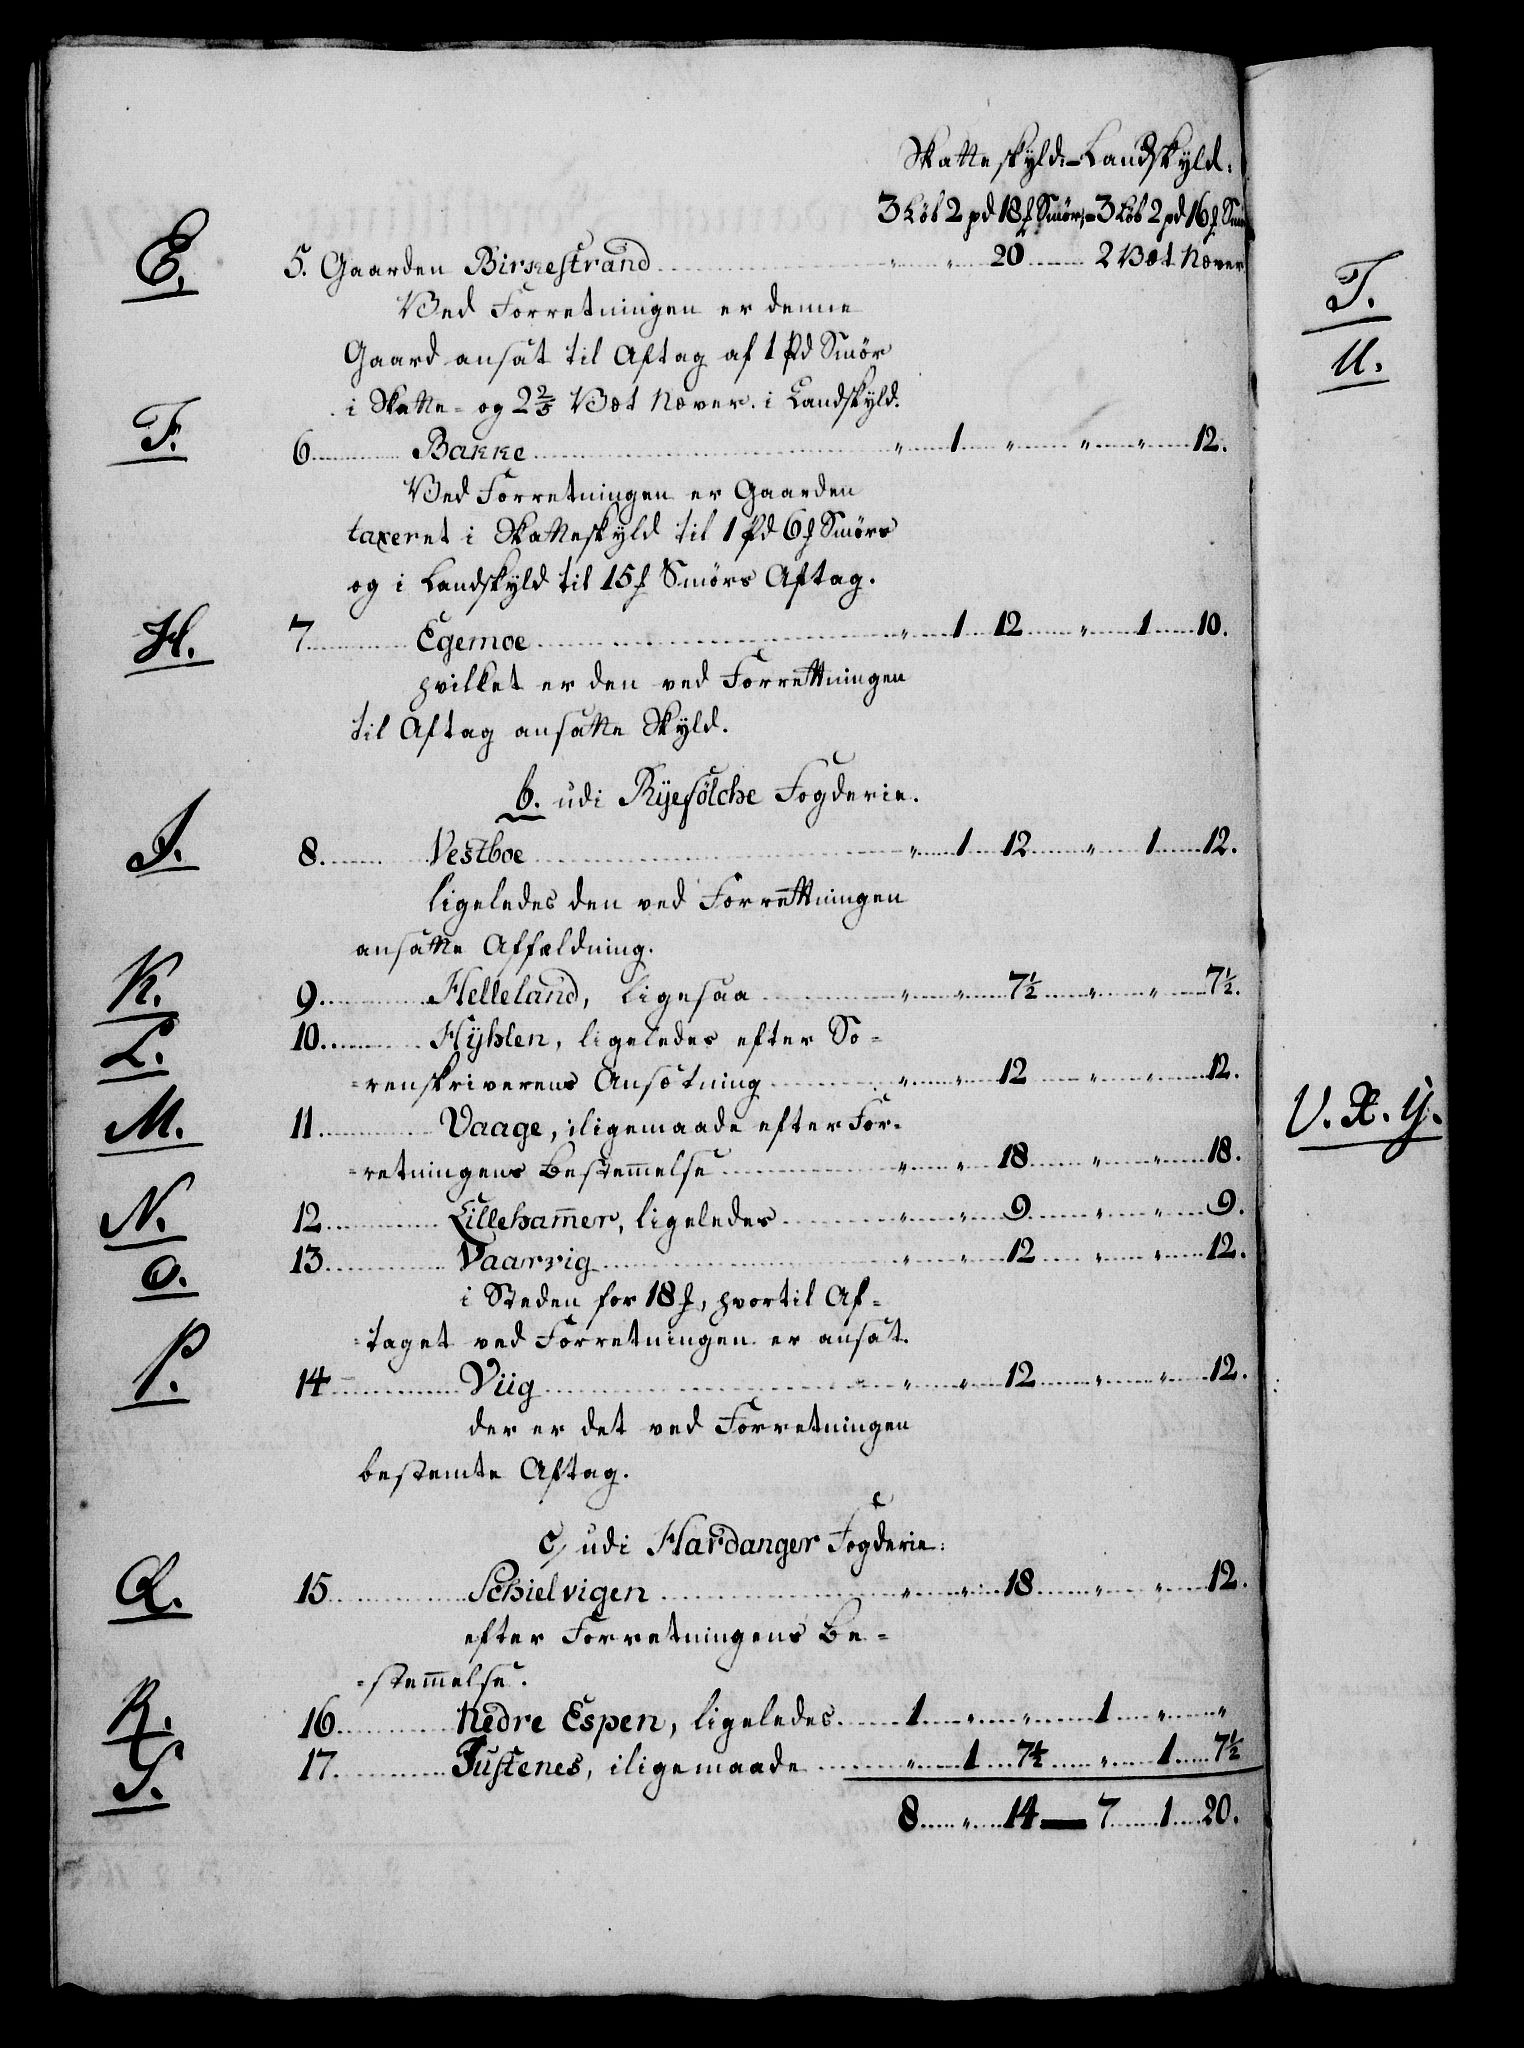 Skatteskyld. Landskyld.
3 Løb 2 pd 18 f Smör, 3 Løb 2 pd 16 f Smör
E. 5. Gaarden Birkestrand " " 20 2 Væt Næver
Ved Forretningen er denne
Gaard ansat til Aftag af 1 Pd Smör
i Skatte- og 2 2/3 Væt Næver i Landskyld.
F. 6 Bakke " 1 " " " 12.
Ved Forretningen er Gaarden
taxeret i Skatteskyld til 1 Pd 6 f Smörs
og i Landskyld til 15 f Smörs Aftag.
H. 7 Egemoe " 1 12 " 1 10.
hvilket er den ved Forrettningen
til Aftag ansatte Skyld.
b. udi Ryefölche Fogderie.
I. 8. Vestboe " 1 12 " 1 12.
ligeledes den ved Forrettningen
ansatte Affældning.
K. 9 Helleland, ligesaa " " 7 1/2 " " 7 1/2.
L. 10. Hyhlen, ligeledes efter So-
-renskriverens Ansætning " " 12 " " 12.
M. 11 Vaage, iligemaade efter For-
-retningens Bestem̅else " " 18 " " 18.
N. 12 Lilleham̅er, ligeledes " " 9 " " 9.
O. 13 Vaarvig " " 12 " " 12.
i Steden for 18 f, hvortil Af-
-taget ved Forretningen er ansat.
P. 14 Viig " " 12 " " 12.
der er det ved Forretningen
bestemte Aftag.
c, udi Hardanger Fogderie.
Q. 15 Schielvigen " " 18 " " 12.
efter Forretningens Be-
-stem̅else.
R. 16 Nedre Espen, ligeledes 1 " " 1 " "
S. 17. Justenes, iligemaade " 1 7 1/2 " 1 7 1/2
8 " 14 — 7 1 20.
T.
U.
V. X. Y.